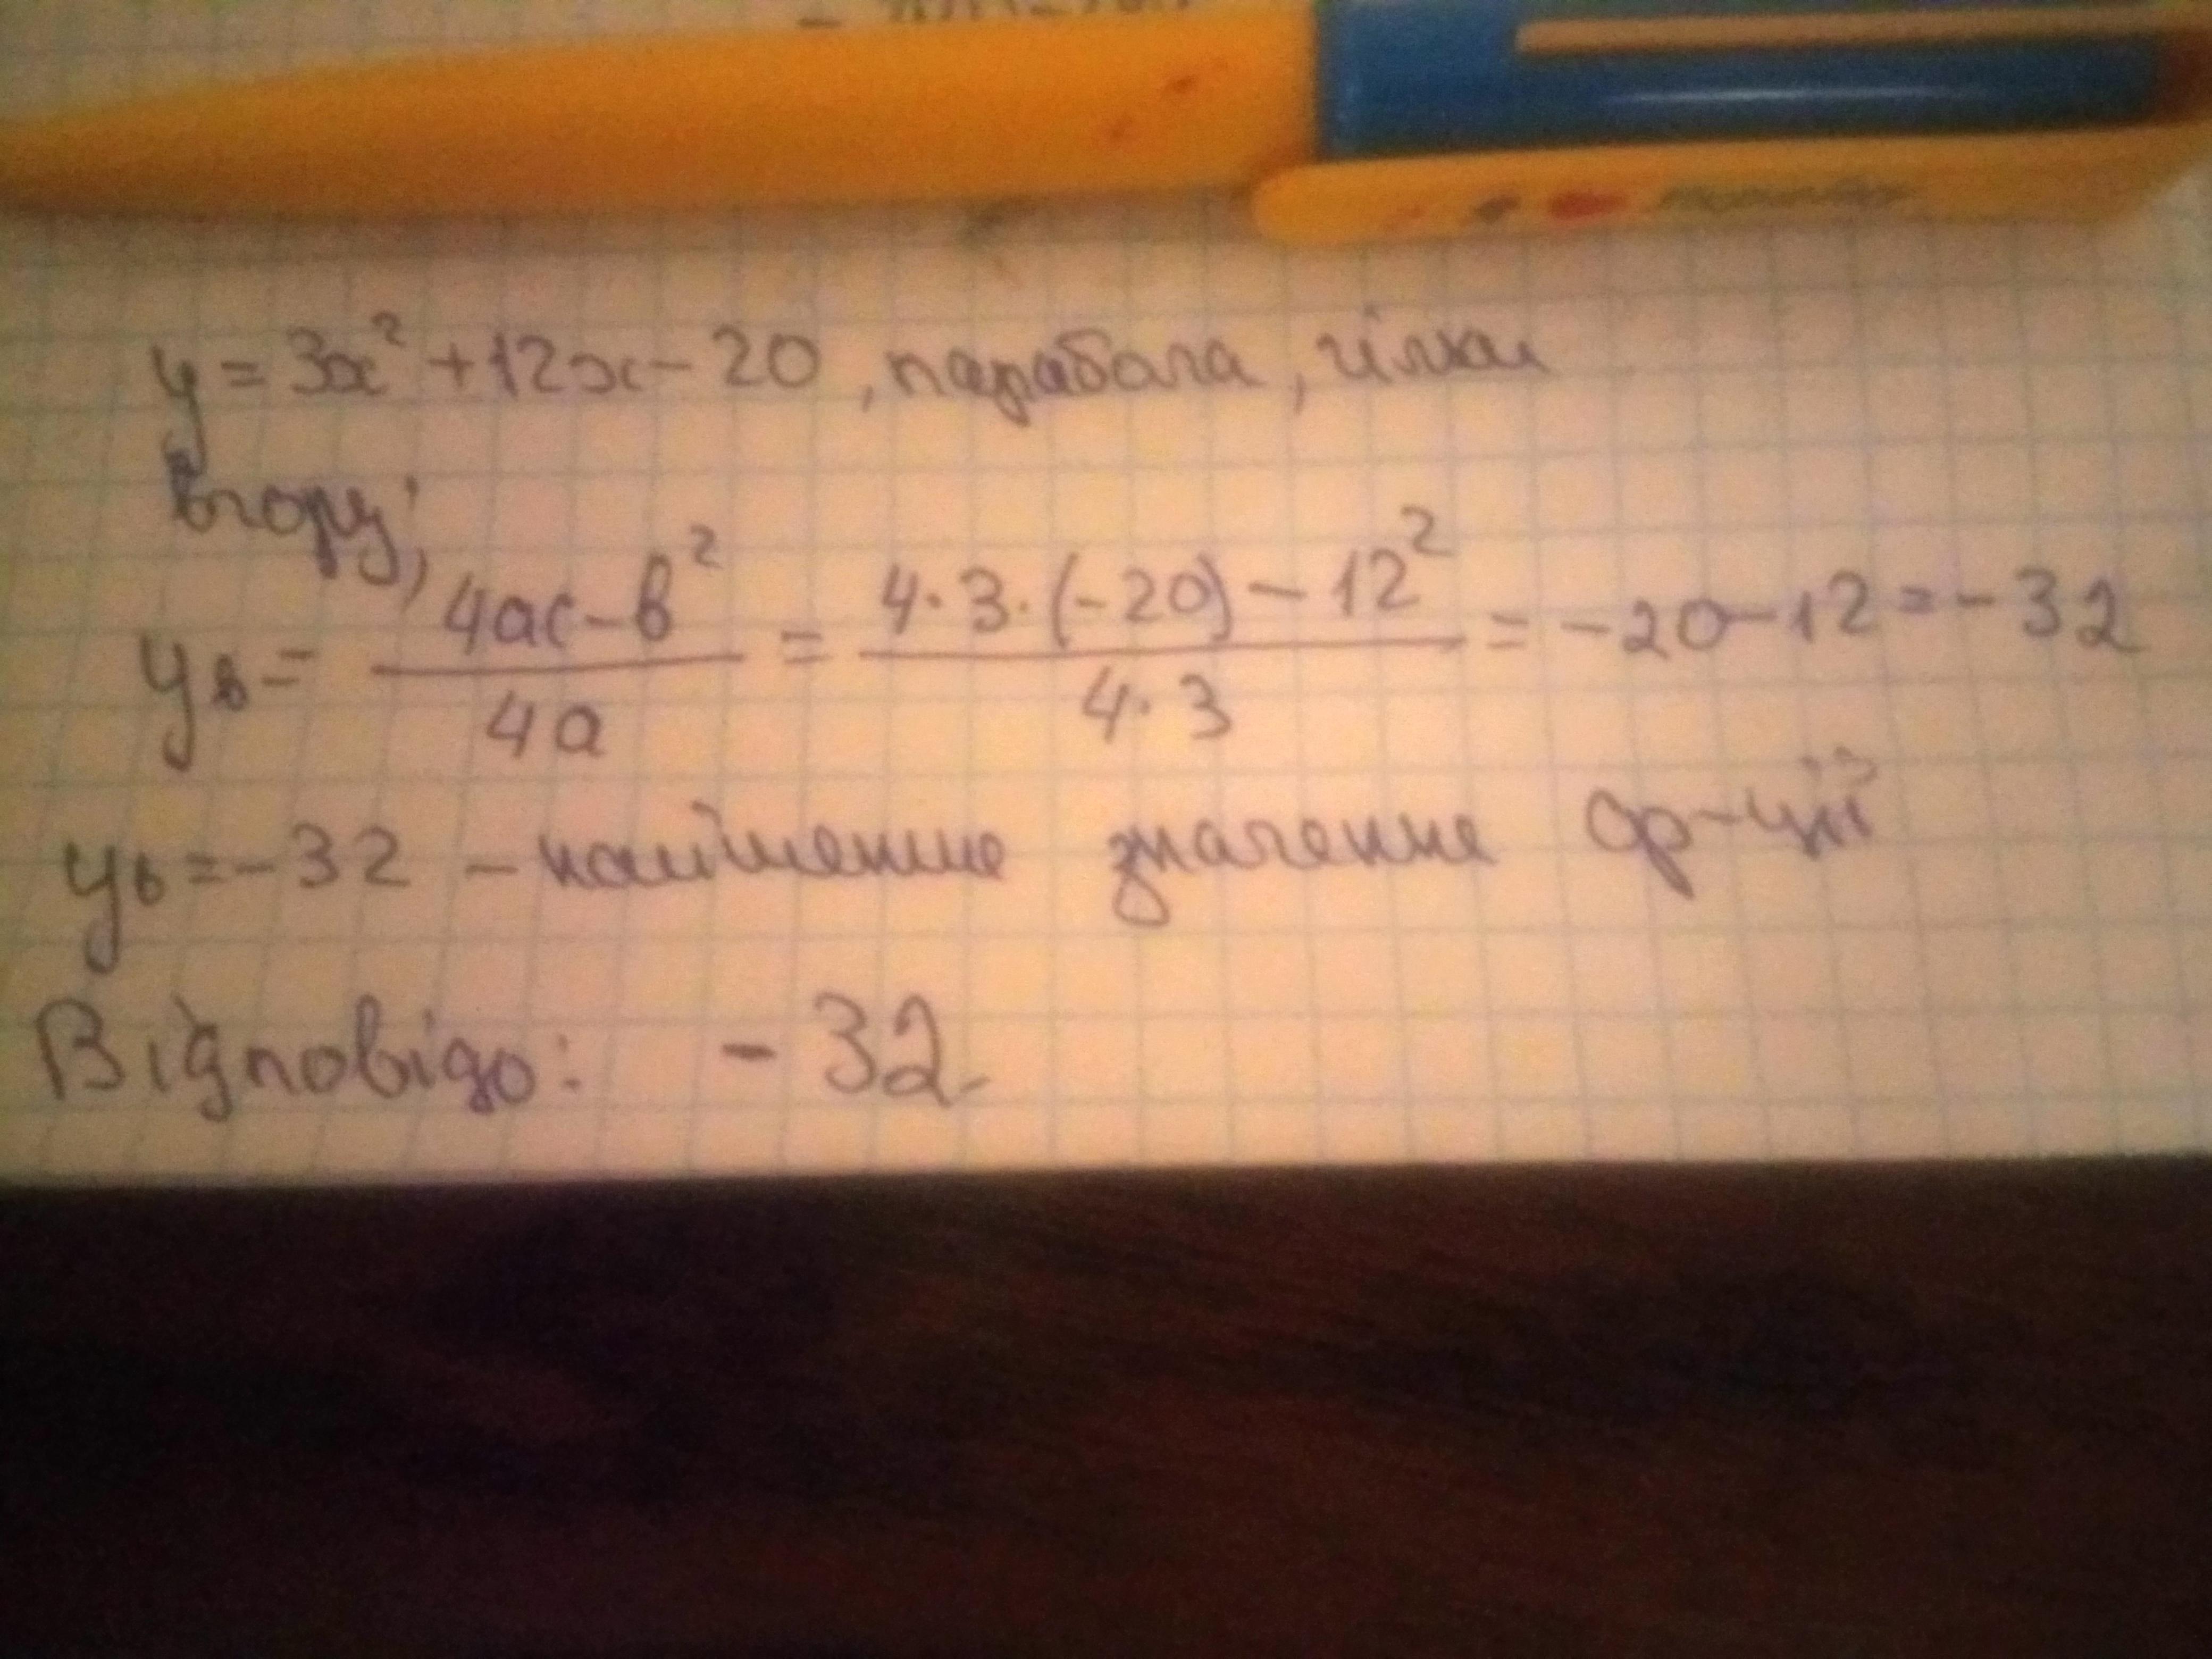 y = 3x² + 12x - 20, парабола, гілки
вгору;
yв = \frac{4ac - b²}{4a} = \frac{4·3·(-20) - 12²}{4·3} = -20 - 12 = -32
yв = -32 - найменше значення ф-ції
Відповідь: -32.